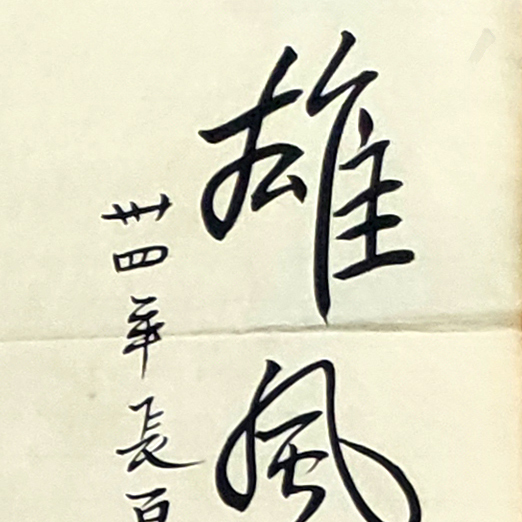 雄風
卅四年長